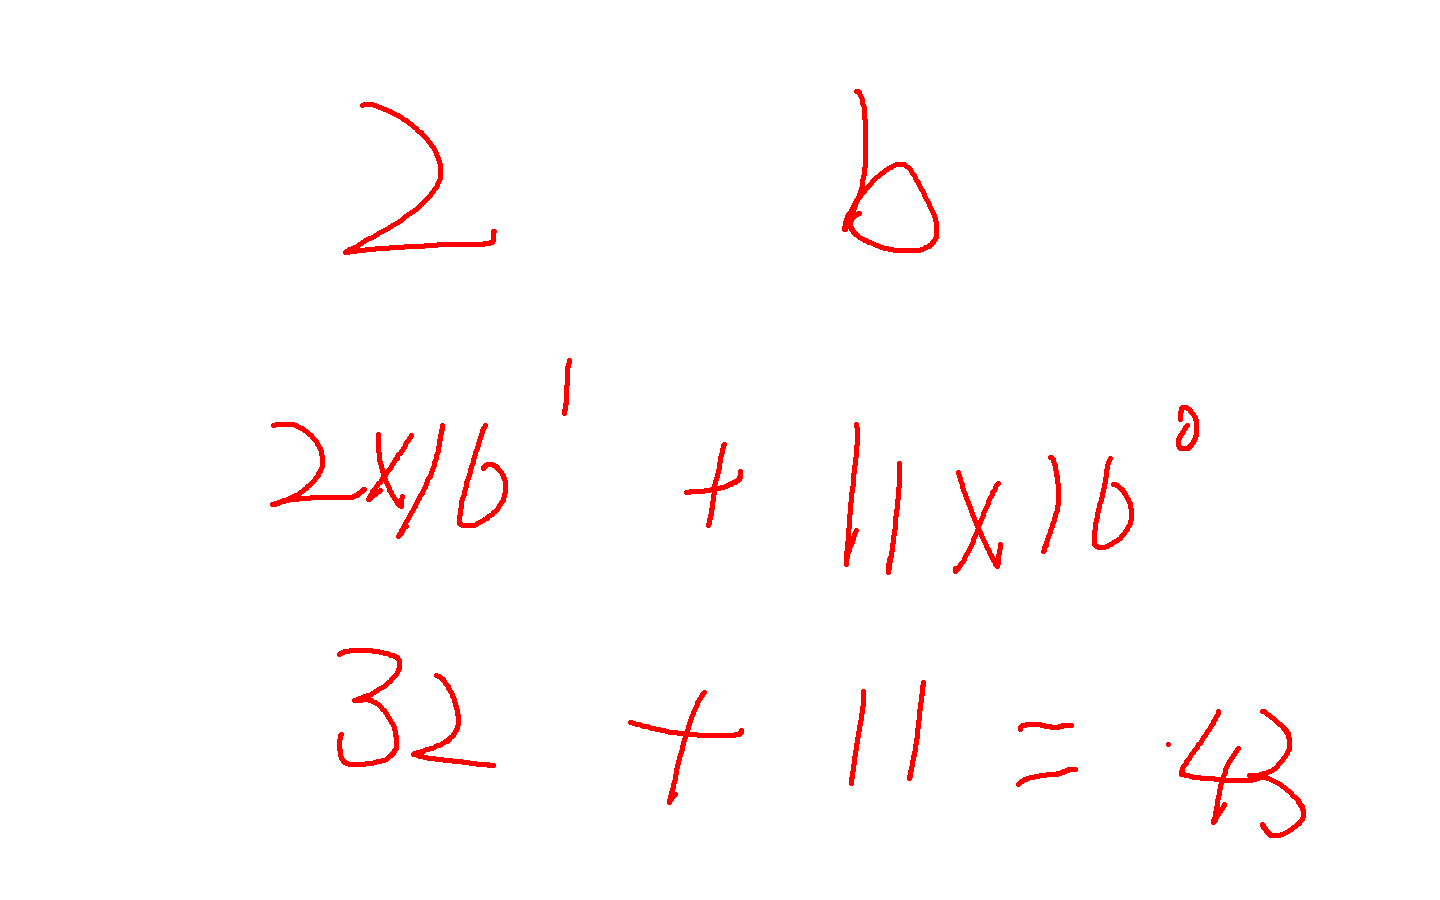 2 b
2×16¹ + 11×16⁰
32 + 11 = 43